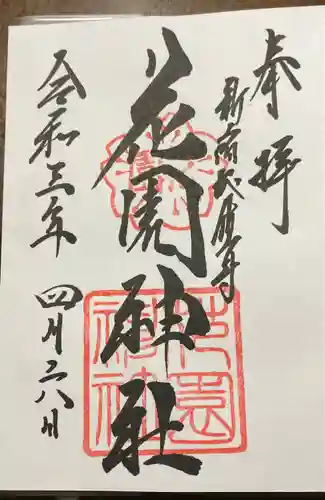 奉拝
新宿総鎮守
花園神社
花園神社
令和三年
四月二八日